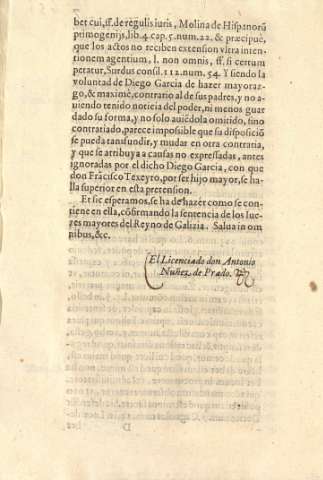 bet cui, ff. de regulis iuris, Molina de Hispanorũ
primogenijs, lib. 4. cap. 5. num. 22. & præcipuè,
que los actos no reciben extension vltra inten-
tionem agentium, l. non omnis, ff. si certum
petatur, Surdus consil. 112. num. 54. Y siendo la
voluntad de Diego Garcia de hazer mayoraz-
go, & maximè, contrario al de sus padres, y no a-
uiendo tenido noticia del poder, ni menos guar
dado su forma, y no solo auiẽdola omitido, sino
contrariado, parece imposible que su disposiciõ
se pueda transfundir, y mudar en otra contraria,
y que se atribuya a causas no expressadas, antes
ignoradas por el dicho Diego Garcia, con que
don Frãcisco Texeyro, por ser hijo mayor, se ha-
lla superior en esta pretension.
Et sic esperamos, se ha de hazer como se con-
tiene en ella, cõfirmando la sentencia de los Iue-
zes mayores del Reyno de Galizia. Salua in om
nibus, &c.
El Licenciado don Antonio
Nuñez de Prado.